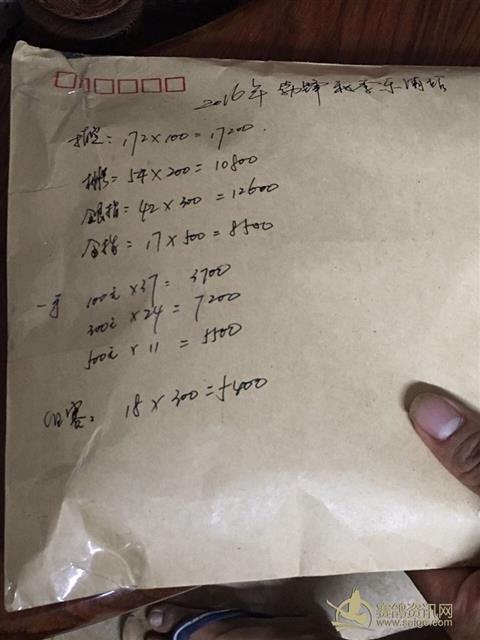 2016年 秋季乐南站
指定: 172×100=17200.
54×200=10800
银指: 42×300=12600
金指: 17×500=8500
一羽 100元×37= 3700
300元×24= 7200
500元×11 = 5500
赛: 18×300=5400
赛鸽资讯网
www.saige.com